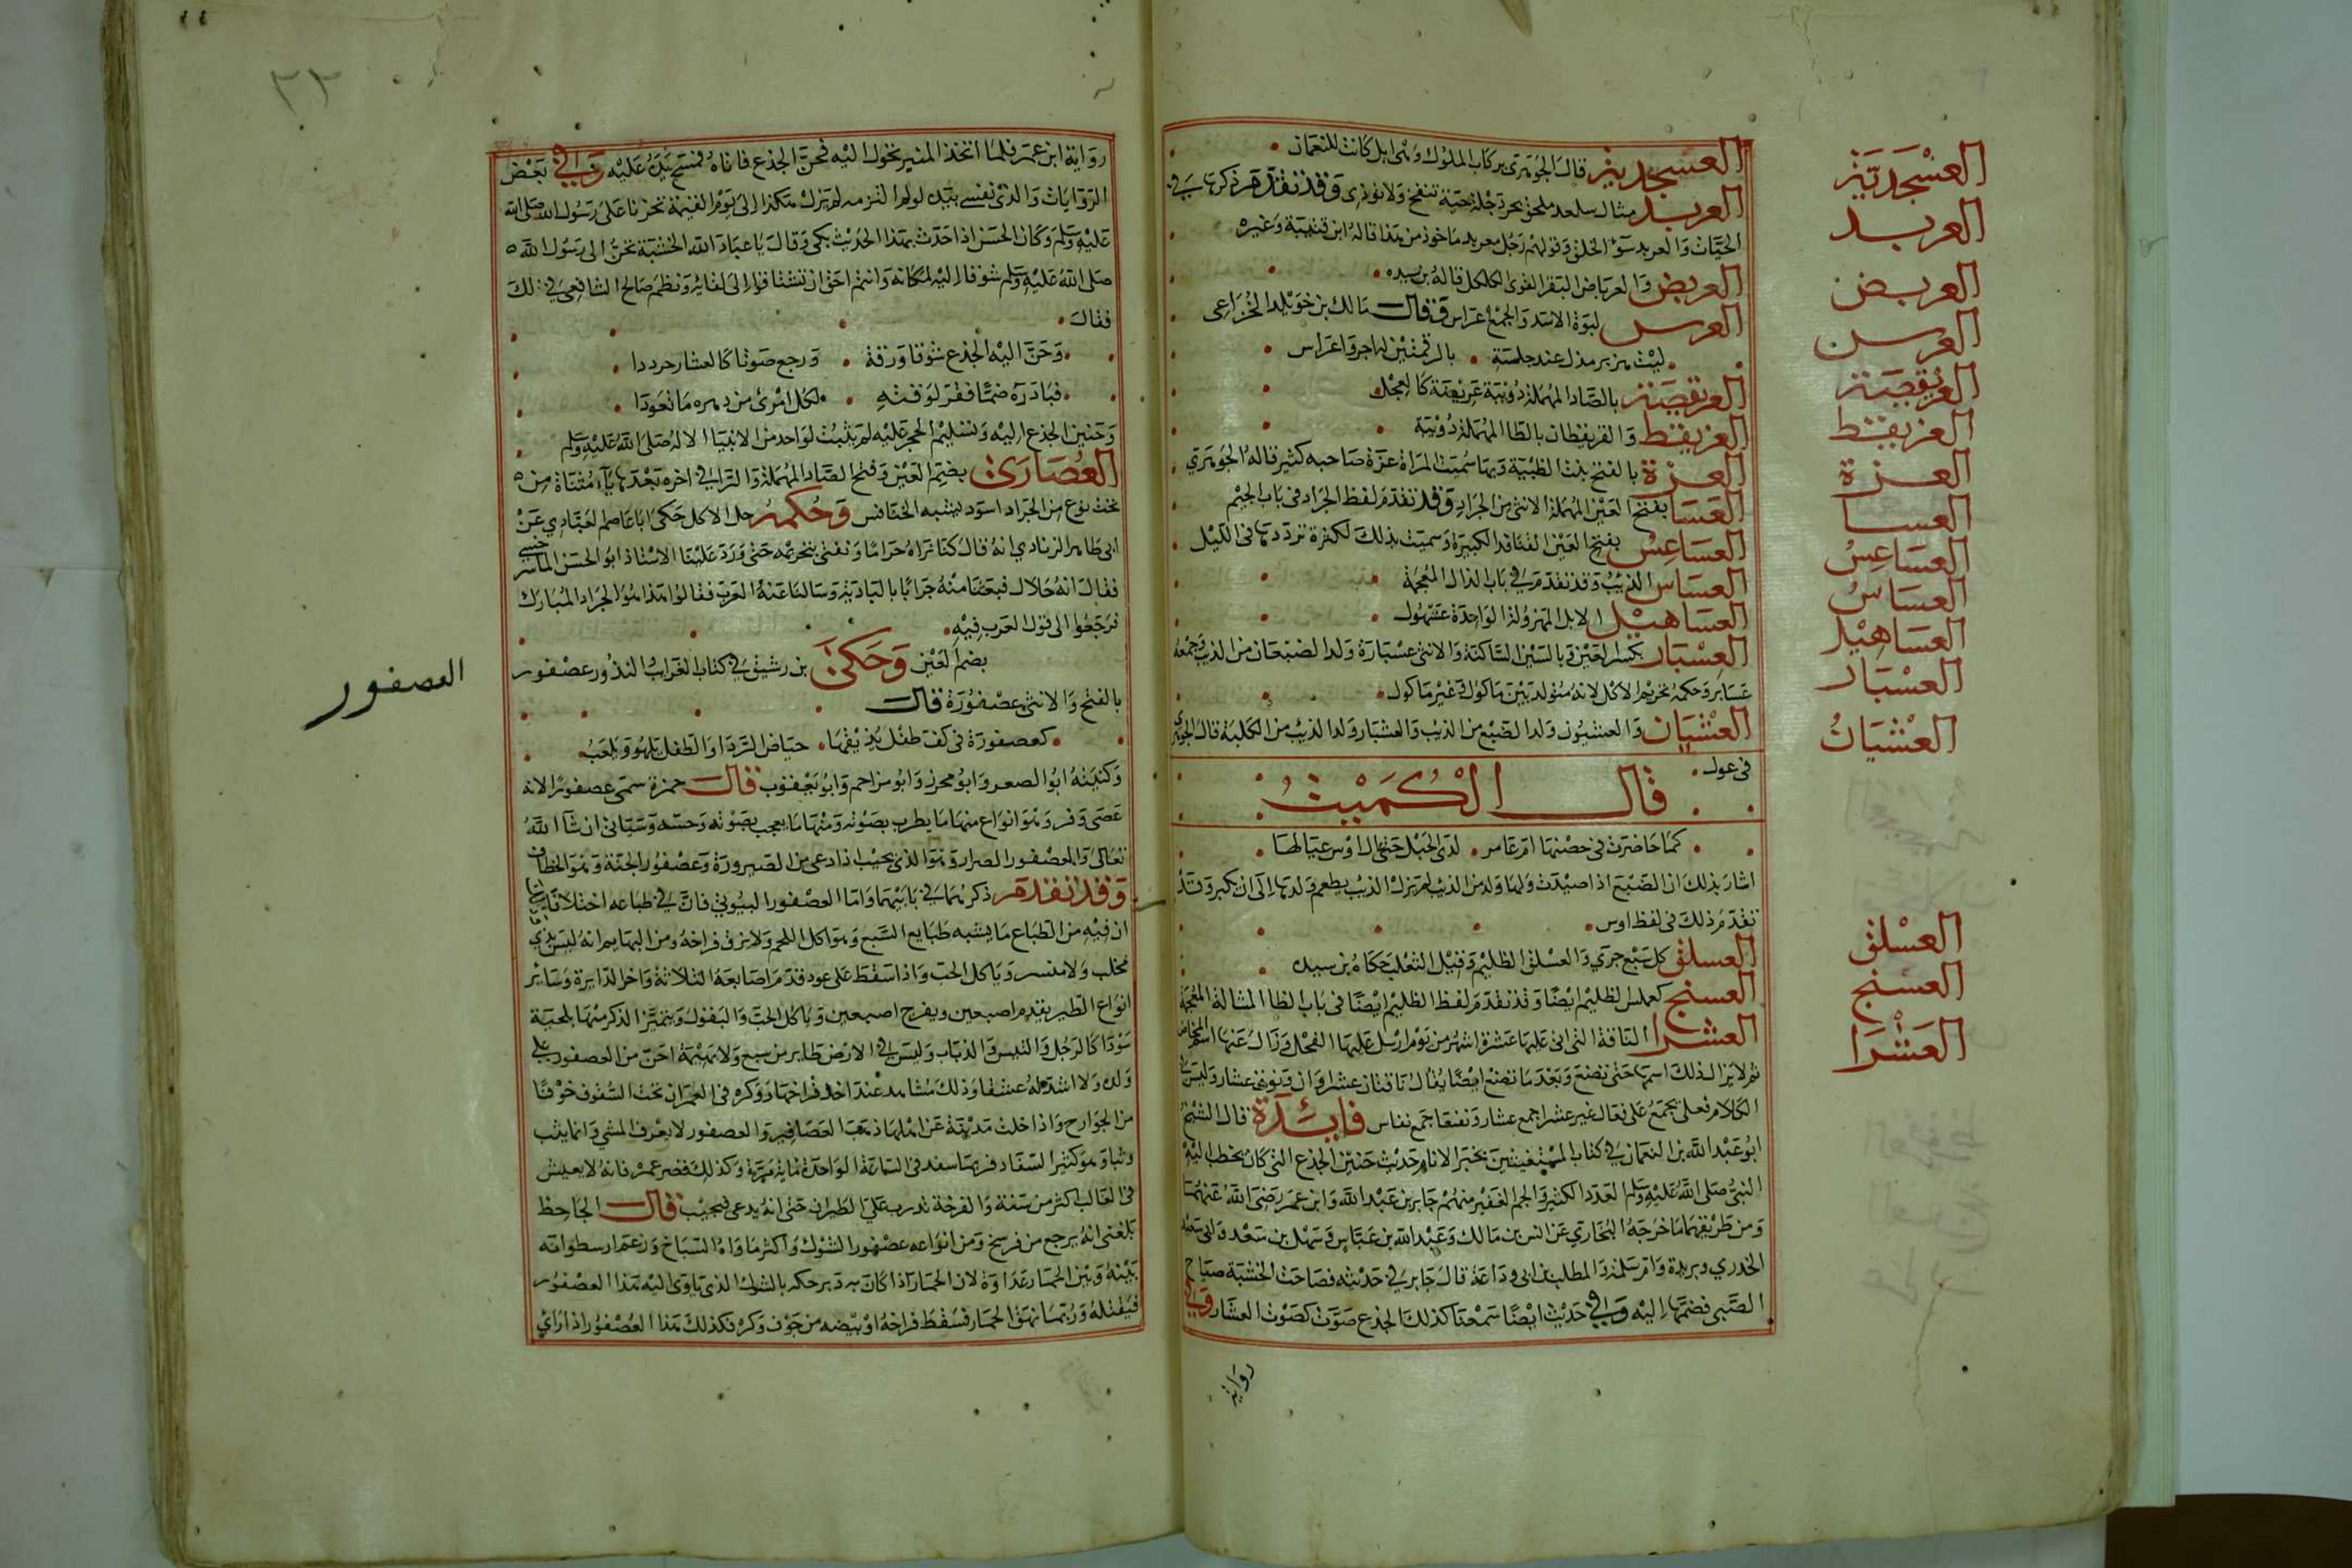 العسجدية قال الجوهري ركاب الملوك وهي ابل كانت للنعمان
العربد مثال سلغد ملحق بجردحلة حية تنفخ ولا توذي وقد تقدم ذكرها في
الحيات والعربد سوء الخلق وقولهم رجل معربد ماخوذ من هذا قاله ابن قتيبة وغيره
العربض والعرباض البقر القوي الكلكل قاله بن سيده
العرس لبوة الاسد والجمع اعراس وقال مالك بن خويلد الخزاعي
ليث هزبر مدل عند جلسته بالرقمتين له اجر واعراس
العريقصة بالصاد المهملة دويبة عريضة كالجعل
العريقطة والعريقطان بالطا المهملة دويبة
العزة بالفتح بنت الظبية وبها سميت المراة عزة صاحبه كثير قاله الجوهري
العسا بفتح العين المهملة الانثى من الجراد وقد تقدم لفظ الجراد في باب الجيم
العساعس بفتح العين القنافد الكبيرة وسميت بذلك لكثرة ترددها في الليل
العساس الذيب وقد تقدم في باب الذال المعجمة
العساهيل الابل المهزولة الواحدة عسهول
العسبار بكسر العين وبالسين الساكنة والانثى عسبارة ولد الضبعان من الذيب وجمعه
عسابر وحكمه تحريم الاكل لانه متولد بين ماكول وغير ماكول
العشيان والعشيون ولد الضبع من الذيب والعشبار ولد الذيب من الكلبة قال الجوهري
في عول
قال الكميت
كما خامرت في حضنها ام عامر لدى الحبل حتى عال اوس عيالها
اشار بذلك ان الضبع اذا صيدت ولها ولد من الذيب لم يزل الذيب يطعم ولدها الى ان يكبر وقد
تقدم ذلك في لفظ اوس
العسلق كل سبع جري والعسلق الظليم وقيل الثعلب حكاه بن سيده
العسنج كعملس الظليم ايضا وقد تقدم لفظ الظليم ايضا في باب الظا المشالة المعجمة
العشرا الناقة التي اتى عليها عشرة اشهر من يوم ارسل عليها الفحل وزال عنها اسم المخاض
ثم لا يزال ذلك اسمها حتى تضع وبعد ما تضع ايضا يقال ناقتان عشراوان ونوق عشار وليس في
الكلام فعلى يجمع على فعال غير عشرا جمع عشار ونفسا جمع نفاس فايدة قال الشيخ
ابو عبد الله بن النعمان في كتاب المستغيثين بخير الانام حديث حنين الجذع الذي كان يخطب اليه
النبي صلى الله عليه وسلم العدد الكثير والجم الغفير منهم جابر بن عبد الله وابن عمر رضي الله عنهما
ومن طريقهما ما خرجه البخاري عن انس بن مالك وعبد الله بن عباس وسهل بن سعد وابي سعيد
الخدري وبريدة وام سلمة والمطلب بن ابي وداعة قال جابر في حديثه فصاحت الخشبة صياح
الصبي فضمها اليه وفي حديث ايضا سمعنا كذلك الجذع صوت كصوت العشار وفي
رواية
العسجدية
العربد
العربض
العرس
العريقصة
العريقطة
العزة
العسا
العساعس
العساس
العساهيل
العسبار
العشيان
العسلق
العسنج
العشرا
٣٣
رواية ابن عمر فلما اتخذ المنبر تحول اليه فحن الجذع فاتاه فمسح يده عليه وفي بعض
الروايات والذي نفسي بيده لو لم التزمه لم يزل هكذا الى يوم القيمة تحزنا على رسول الله صلى الله
عليه وسلم وكان الحسن اذا حدث بهذا الحديث بكى وقال يا عباد الله الخشبة تحن الى رسول الله
صلى الله عليه وسلم شوقا اليه لمكانه وانتم احق ان تشتاقوا الى لقائه ونظم صالح الشافعي في ذلك
فقال
وحن اليه الجذع شوقا ورقة ورجع صوتا كالعشار مرددا
فبادره ضما فقر لوقته لكل امرئ من دهره ما تعودا
وحنين الجذع اليه وتسليم الحجر عليه لم يثبت لواحد من الانبيا الا له صلى الله عليه وسلم
العصارى بضم العين وفتح الصاد المهملة والرا في اخره بعدها ياء مثناة من
تحت نوع من الجراد اسود يشبه الخنافس وحكمه حل الاكل حكى ابا عاصم العبادي عن
ابي طاهر الزيادي انه قال كنا نراه حراما ونفتي بتحريمه حتى ورد علينا الاستاذ ابو الحسن الماسرجسي
فقال انه حلال فبعثنا منه جرابا بالبادية وسالنا عنه العرب فقالوا هذا هو الجراد المبارك
فرجعوا الى قول العرب فيه
بضم العين وحكى بن رشيق في كتاب الغراب الشذور عصفور
بالفتح والانثى عصفورة قال
كعصفورة في كف طفل يذيقها حياض الردا والطفل يلهو ويلعب
وكنيته ابو الصعو وابو محرز وابو مزاحم وابو يعقوب قال حمزة سمى عصفورا لانه
عصى وفر وهو انواع منها ما يطرب بصوته ومنها ما يعجب بصوته وحسنه وسياتي ان شا الله
تعالى والعصفور الصرار وهو الذي يجيب اذا دعي من الصيرورة وعصفور الجنة وهو الخطاف
وقد تقدم ذكرهما في بابيهما واما العصفور البيوتي فان في طباعه اختلافا
ان فيه من الطباع ما يشبه طبايع السبع وهو اكل اللحم ولا يزق فراخه ومن البهايم انه ليس بذي
مخلب ولا منسر وياكل الحب واذا سقط على عود قدم اصابعه الثلاثة واخر الدابرة وسائر
انواع الطير يقدم اصبعين ويؤخر اصبعين وياكل الحب والبقول ويتميز الذكر منها بلحية
سودا كالرجل والتيس والذباب وليس في الارض طاير من سبع ولا بهيمة احن من العصفور على
ولده ولا اشد له عشقا وذلك مشاهد عند اخذ فراخها ووكره في العمران تحت السقوف خوفا
من الجوارح واذا خلت مدينة عن اهلها ذهب العصافير والعصفور لا يعرف المشي وانما يثب
وثبا وهو كثير السفاد فربما سفد في الساعة الواحدة مائة مرة وكذلك قصر عمره فانه لا يعيش
في الغالب اكثر من سنة والفرخة تدرب على الطيران حتى انه يدعى فيجيب قال الجاحظ
بلغني انه يرجع من فرسخ ومن انواعه عصفور الشوك واكثر ماواه السباخ وزعم ارسطو انه
بينه وبين الحمار عداوة لان الحمار اذا كان به دبر حكه بالشوك الذي ياوى اليه هذا العصفور
فيقتله وربما نهق الحمار فسقط فراخه او بيضه من جوف وكره فكذلك هذا العصفور اذا راى
العصفور